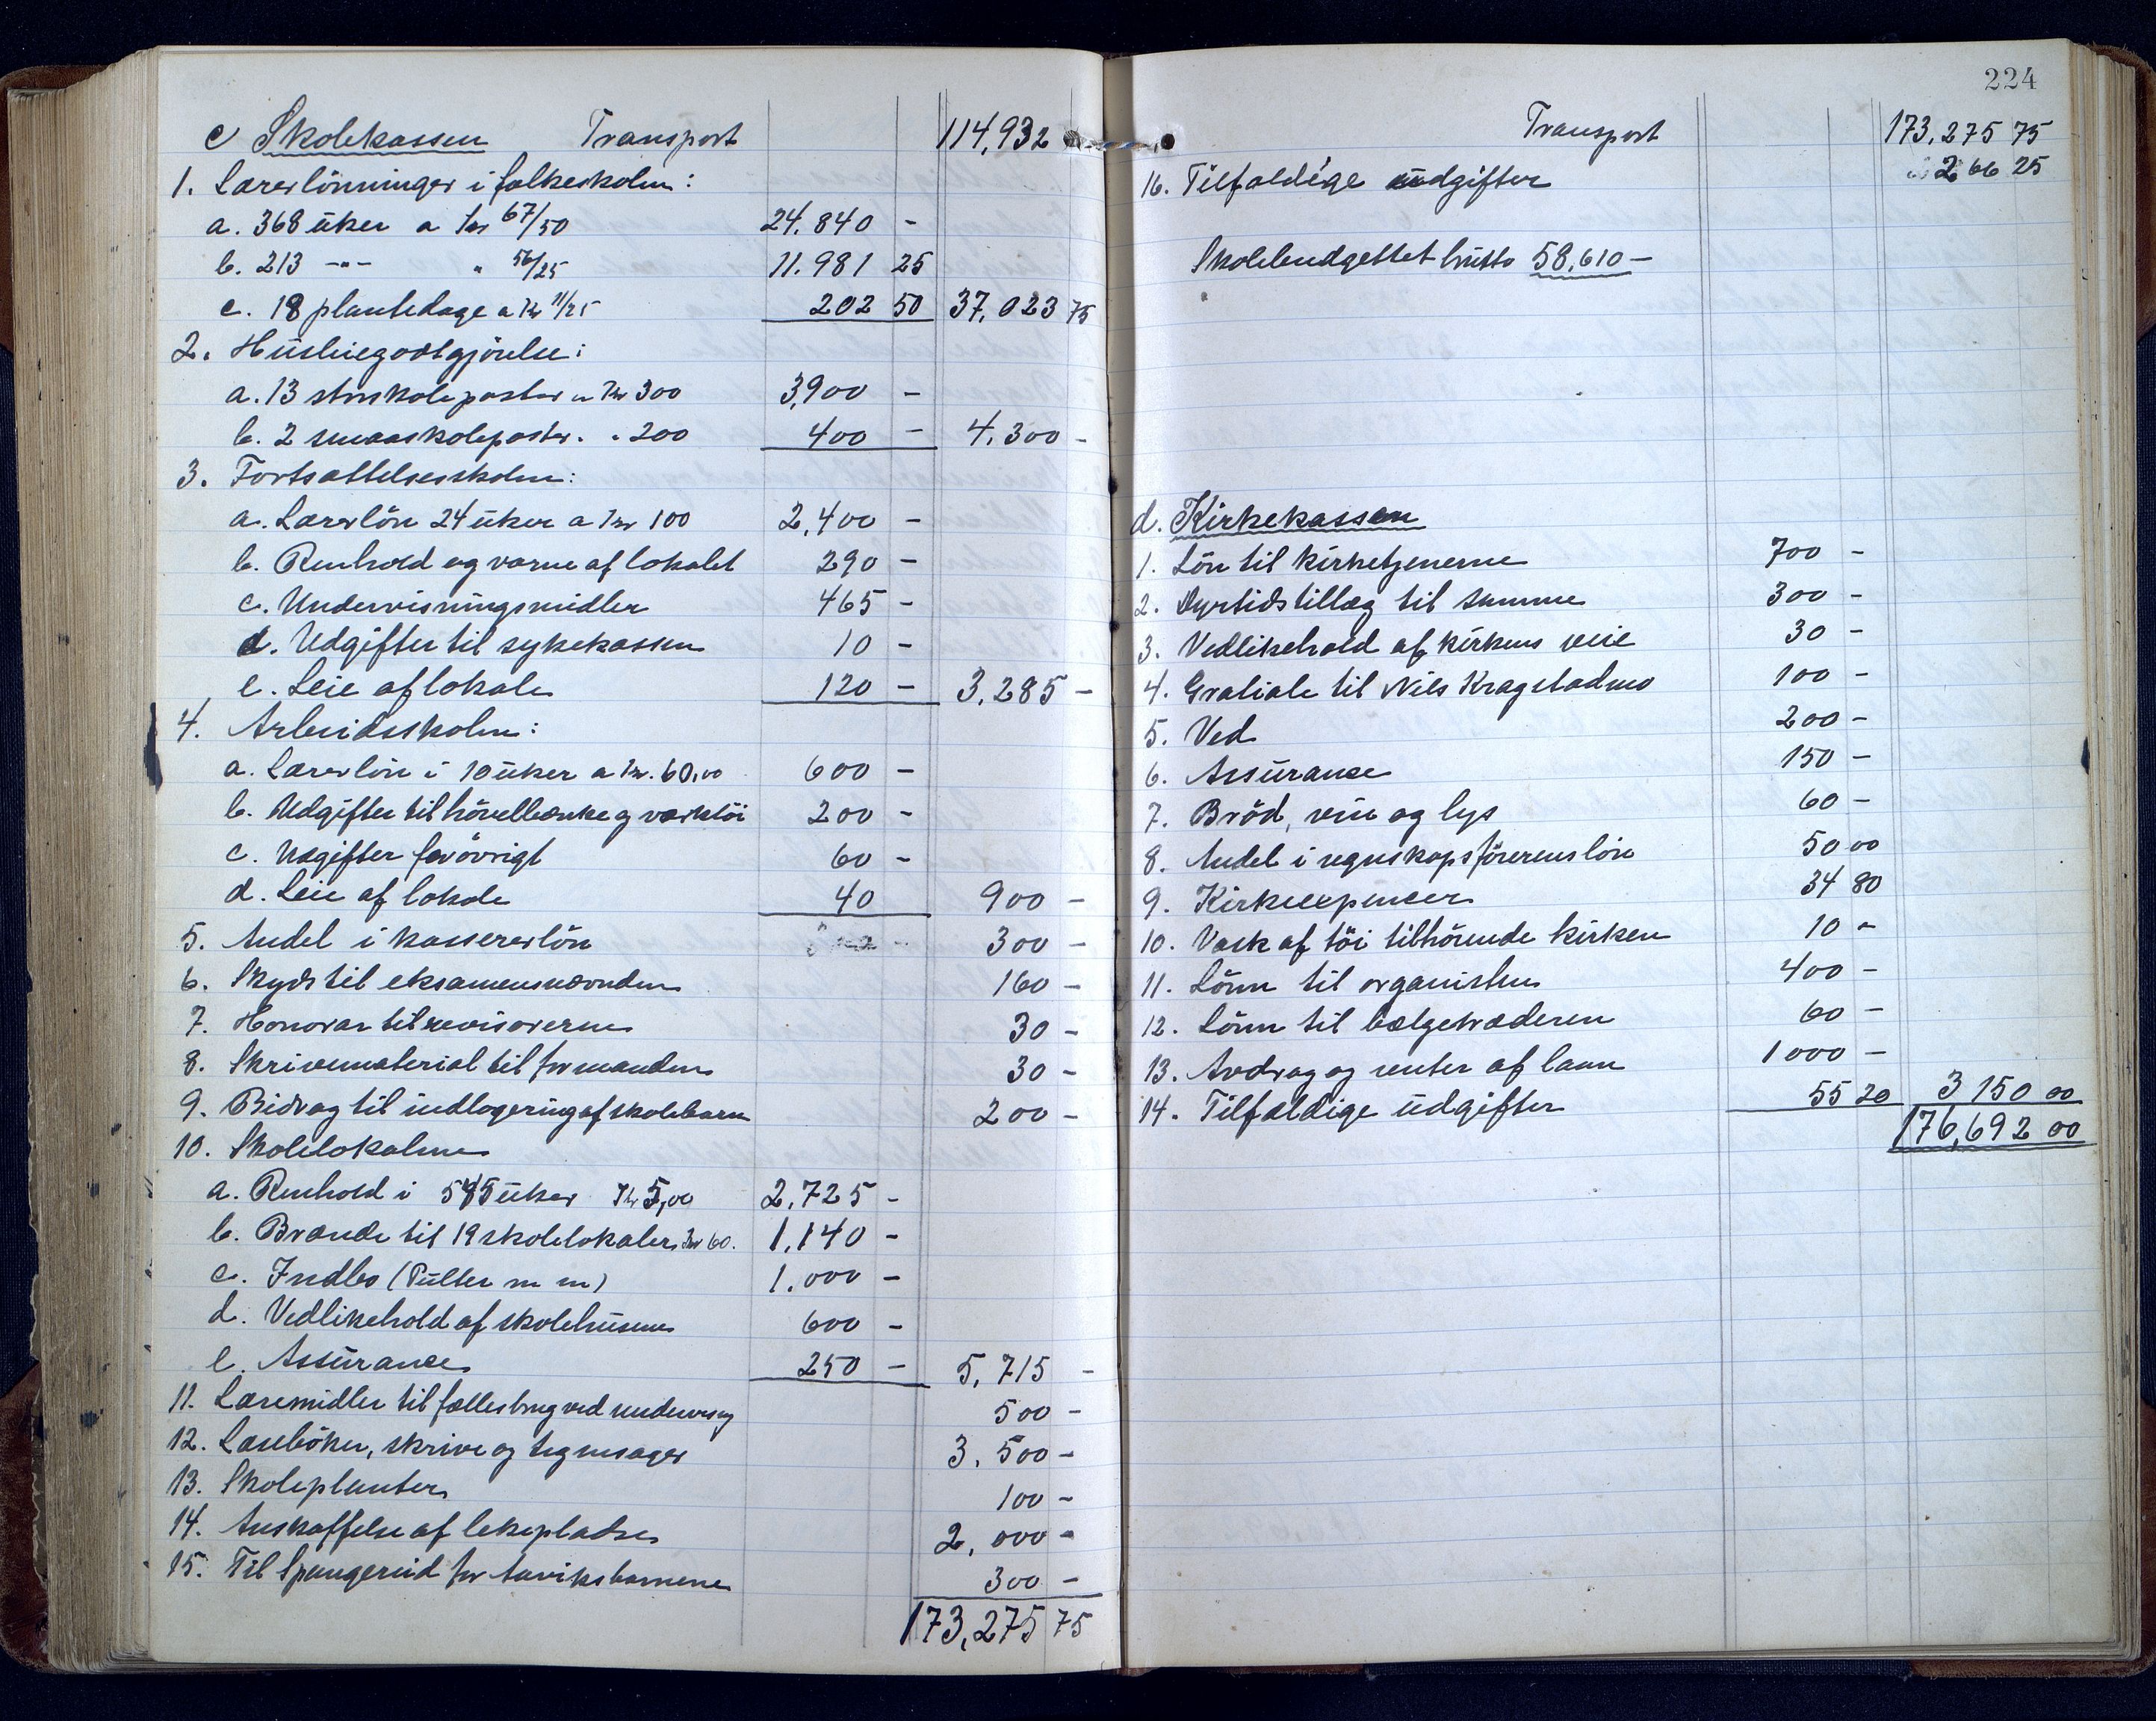 c Skolekassen Transport 114,932
1. Lærerlönninger i folkeskolen:
a. 368 uker a kr 67/50 24.840 -
b. 213 -"- " 56/25 11.981 25
c. 18 plantedage a kr 11/25 202 50 37,023 75
2. Husleiegodtgjörelse:
a. 13 storskoleposter a kr 300 3,900 -
b. 2 smaaskoleposter " " 200 400 - 4.300 -
3. Fortsættelsesskolen:
a. Lærerlön 24 uker a kr 100 2,400 -
b. Renhold og varme af lokalet 290 -
c. Undervisningsmidler 465 -
d. Udgifter til sykekassen 10 -
e. Leie af lokale 120 - 3.285 -
4. Arbeidsskolen:
a. Lærerlön i 10 uker a kr. 60,00 600 -
b. Udgifter til hövelbænke og værktöi 200 -
c. Udgifter forövrigt 60 -
d. Leie af lokale 40 900 -
5. Andel i kassererlön 300 -
6. Skyds til eksamensnævnden 160 -
7. Honorar til revisorerne 30 -
8. Skrivemateriál til formanden 30 -
9. Bidrag til indlogering af skolebarn 200 -
10. Skolelokalene
a. Renhold i 545 uker kr 5,00 2.725 -
b. Brænde til 19 skolelokaler kr 60. 1.140 -
c. Indbo (Pulter m m) 1.000 -
d. Vedlikehold af skolehusene 600 -
e. Assurance 250 - 5,715 -
11. Læremidler til fælles brug ved undervisng 500 -
12. Læsebøker, skrive og tegnesager 3.500 -
13. Skoleplanter 100 -
14. Anskaffelse af lekepladse 2,000 -
15. Til Spangereid for barnene 300 -
173,275 75
224
Transport 173,275 75
16. Tilfældige udgifter 266 25
Skolebudgettet brutto 58,610 -
d. Kirkekassen
1. Lön til kirketjenerne 700 -
2. Dyrtidstillæg til samme 300 -
3. Vedlikehold af kirkens veie 30 -
4. Gratiale til Nils Kragstadmo 100 -
5. Ved 200 -
6. Assurance 150 -
7. Bröd, vin og lys 60 -
8. Andel i regnskapsförerens lön 50 00
9. Kirkeexpenser 34 80
10. Vask af töi tilhörende kirken 10 -
11. Lönn til organisten 400 -
12. Lönn til bælgetræderen 60 -
13. Avdrag og renter af laan 1000 -
14. Tilfældige udgifter 55 20 3 150 00
176,692 00